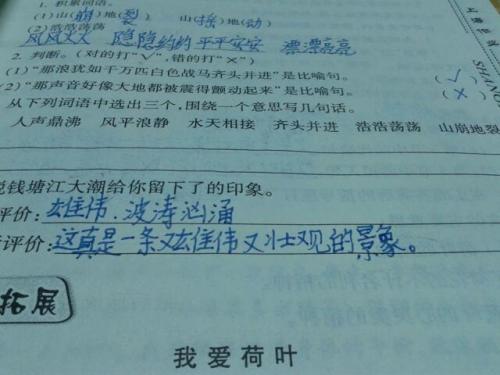 1. 积累词语。
(1)山(崩)地(裂) 山(摇)地(动)
(2)浩浩荡荡
风风火火 隐隐约约 平平安安 漂漂亮亮
2. 判断。(对的打“√”,错的打“×”)
(1)“那浪犹如千万匹白色战马齐头并进”是比喻句。 (√)
(2)“那声音好像大地都被震得颤动起来”是比喻句。 (×)
从下列词语中选出三个,围绕一个意思写几句话。
人声鼎沸 风平浪静 水天相接 齐头并进 浩浩荡荡 山崩地裂
说钱塘江大潮给你留下了的印象。
评价:雄伟.波涛汹涌
评价:这真是一条又雄伟又壮观的景象。
拓展
我爱荷叶